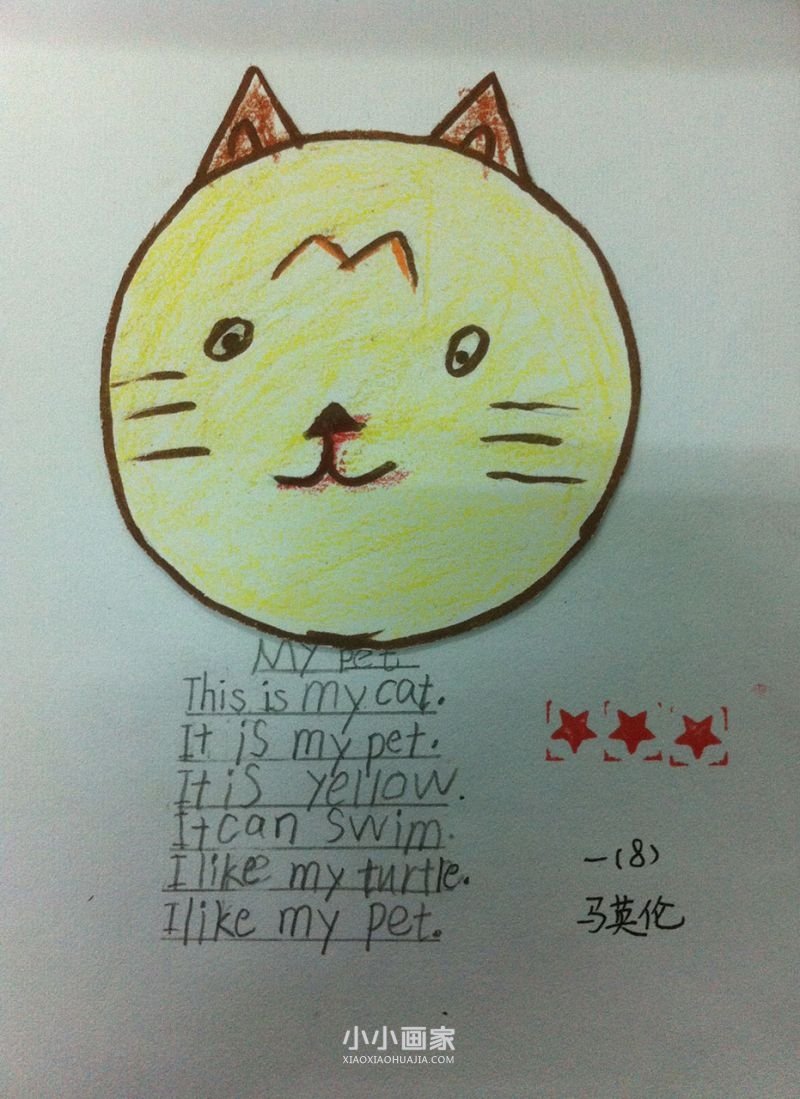 My pet.
This is my cat.
It is my pet.
It is yellow.
It can swim.
I like my turtle.
I like my pet.
一(8)
马英伦
小小画家
XIAOXIAOHUAJIA.COM